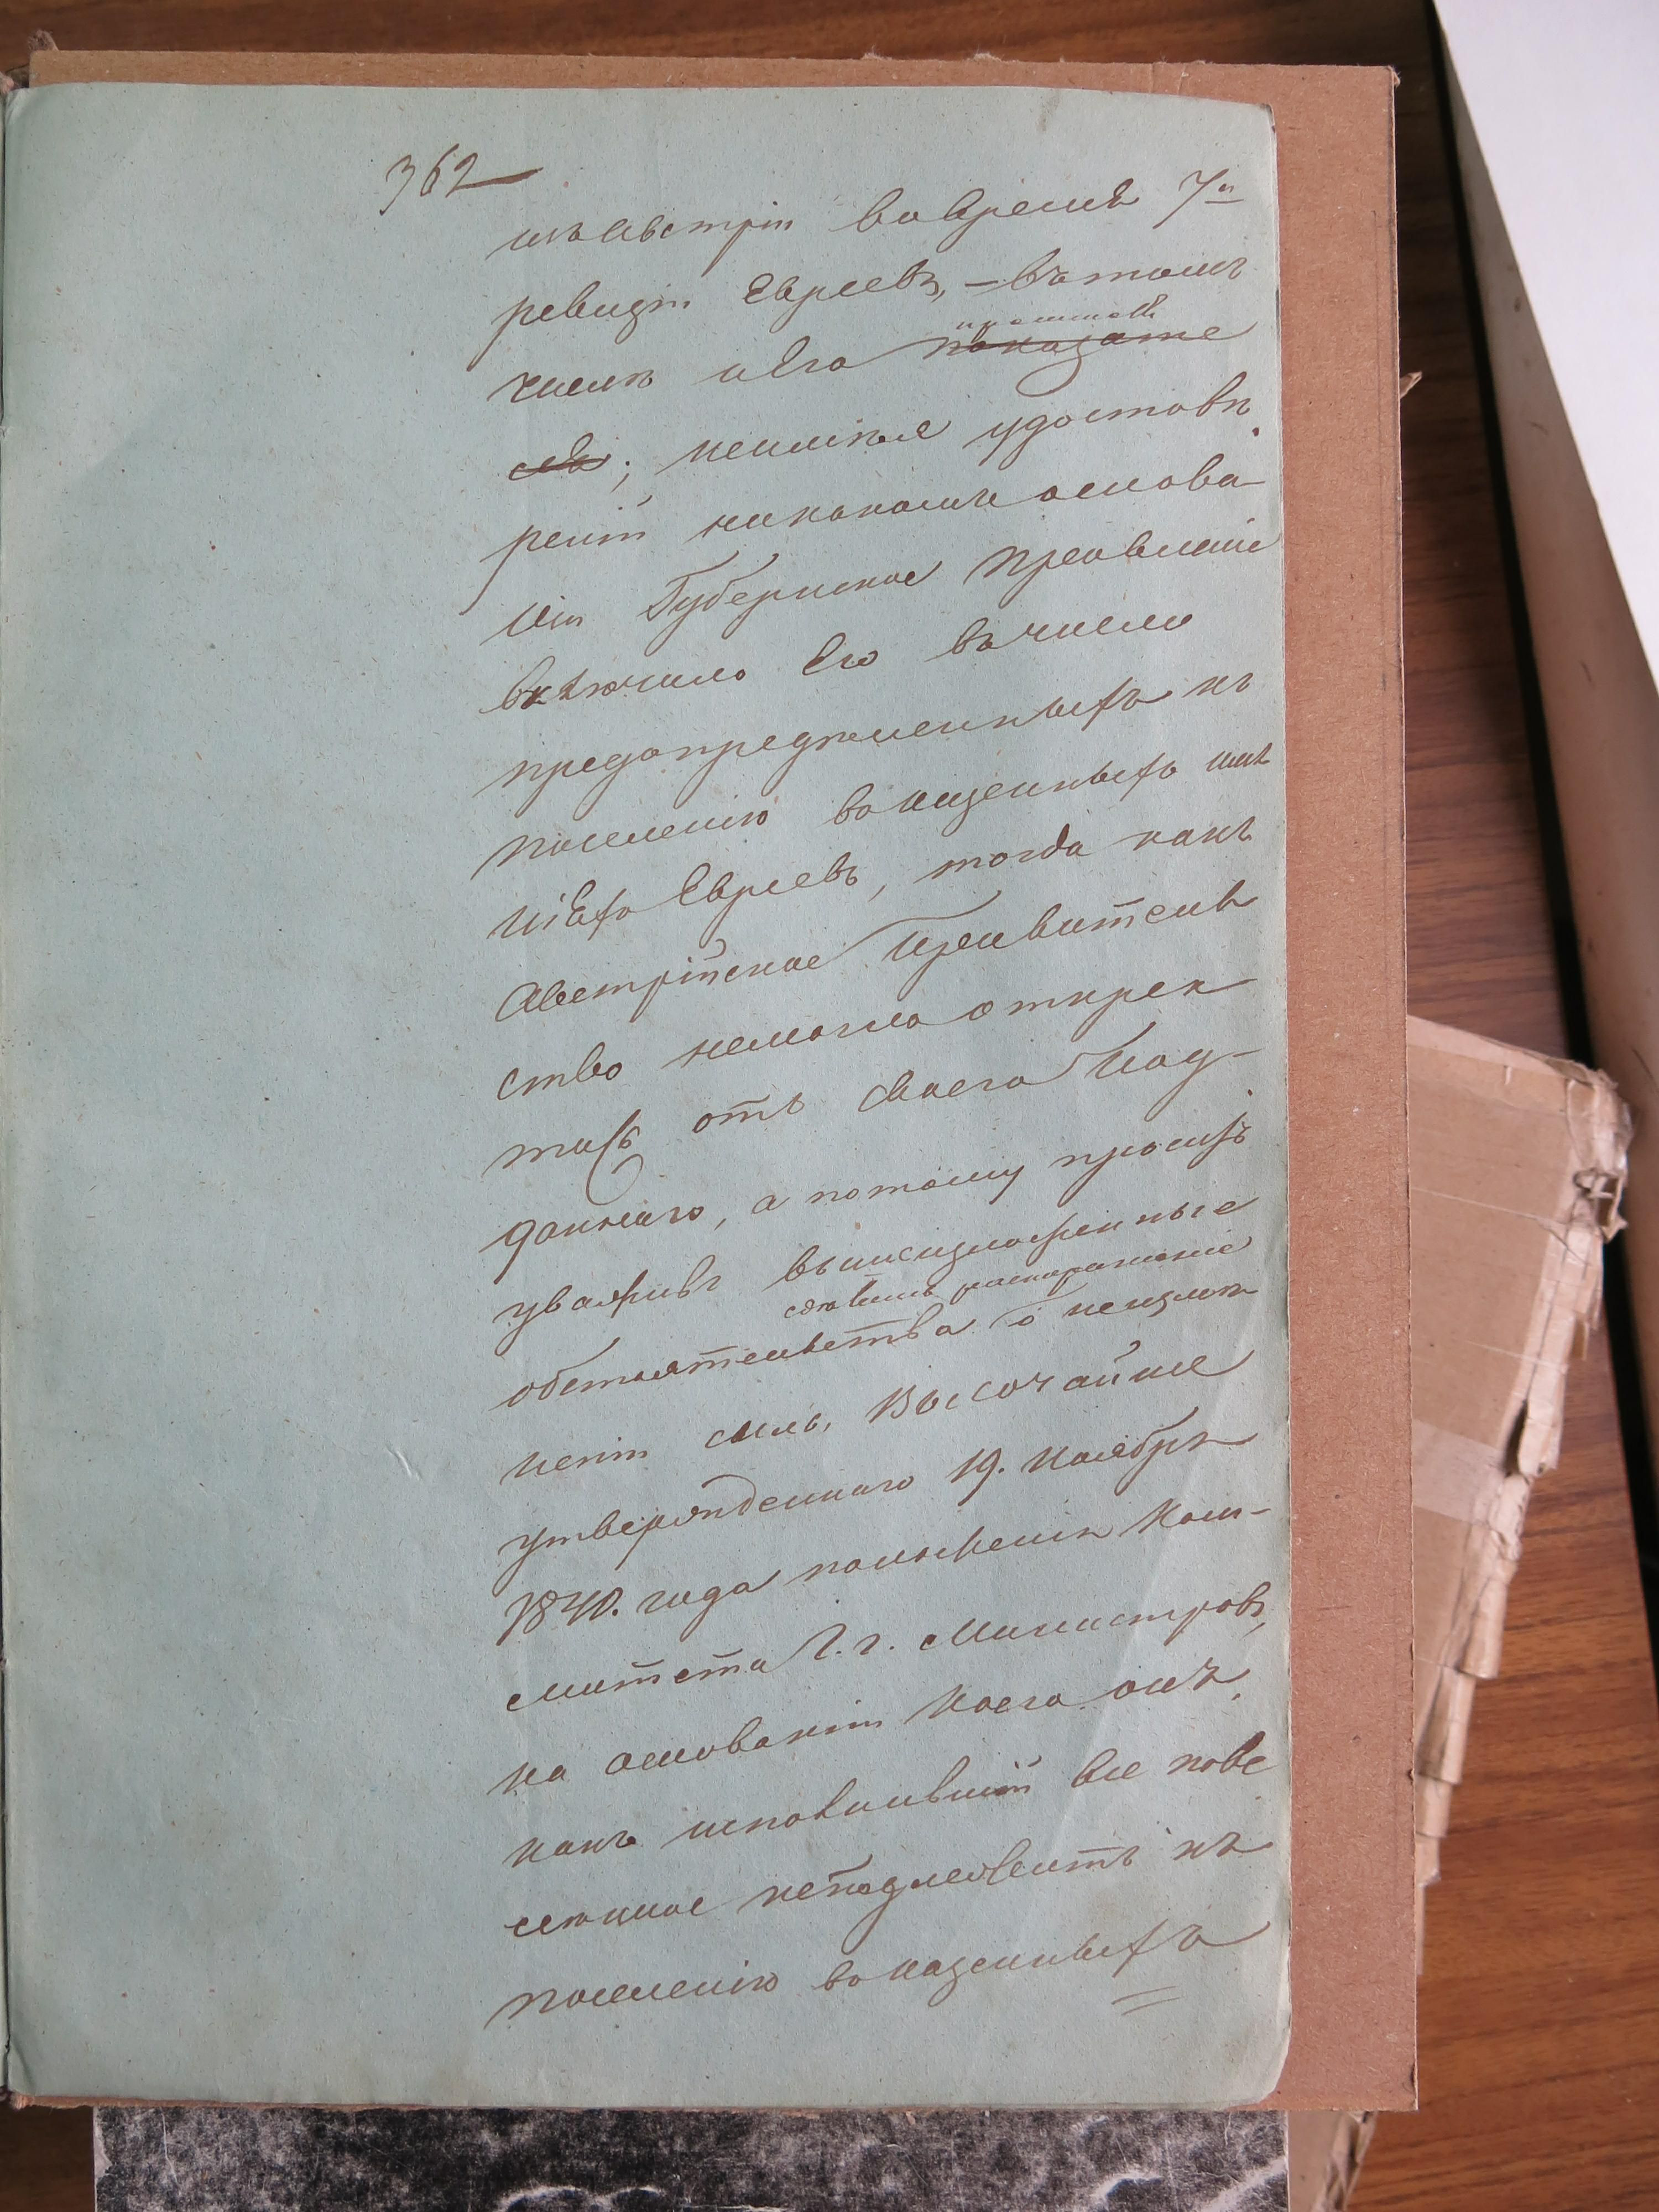 362
изъ Австріи во время 7й
ревизіи Евреевъ, – въ томъ
просителя
числѣ и его показате
ля; неимѣя удостовѣ
реній никакомъ основа
ніи Губернское Правленіе
включило Его въ число
предопредѣленныхъ къ
поселенію в казенныхъ имѣ
ніяхъ Евреевъ, тогда какъ
Австрійское Правитель
ство немогло отпрек
тись отъ своего Под-
даннаго, а потому проситъ
уваживъ вышеизложенныя
сдѣлать распоряженіе
обстоятельства о неизмѣ
неніи силы, Высочайше
утвержденнаго 19. Ноября
1840. года положенія Ком-
митета Г. г. Министровъ,
на основаніи коего онъ,
какъ исполнившій все пове
ленное неподлежитъ къ
поселенію в казенныхъ